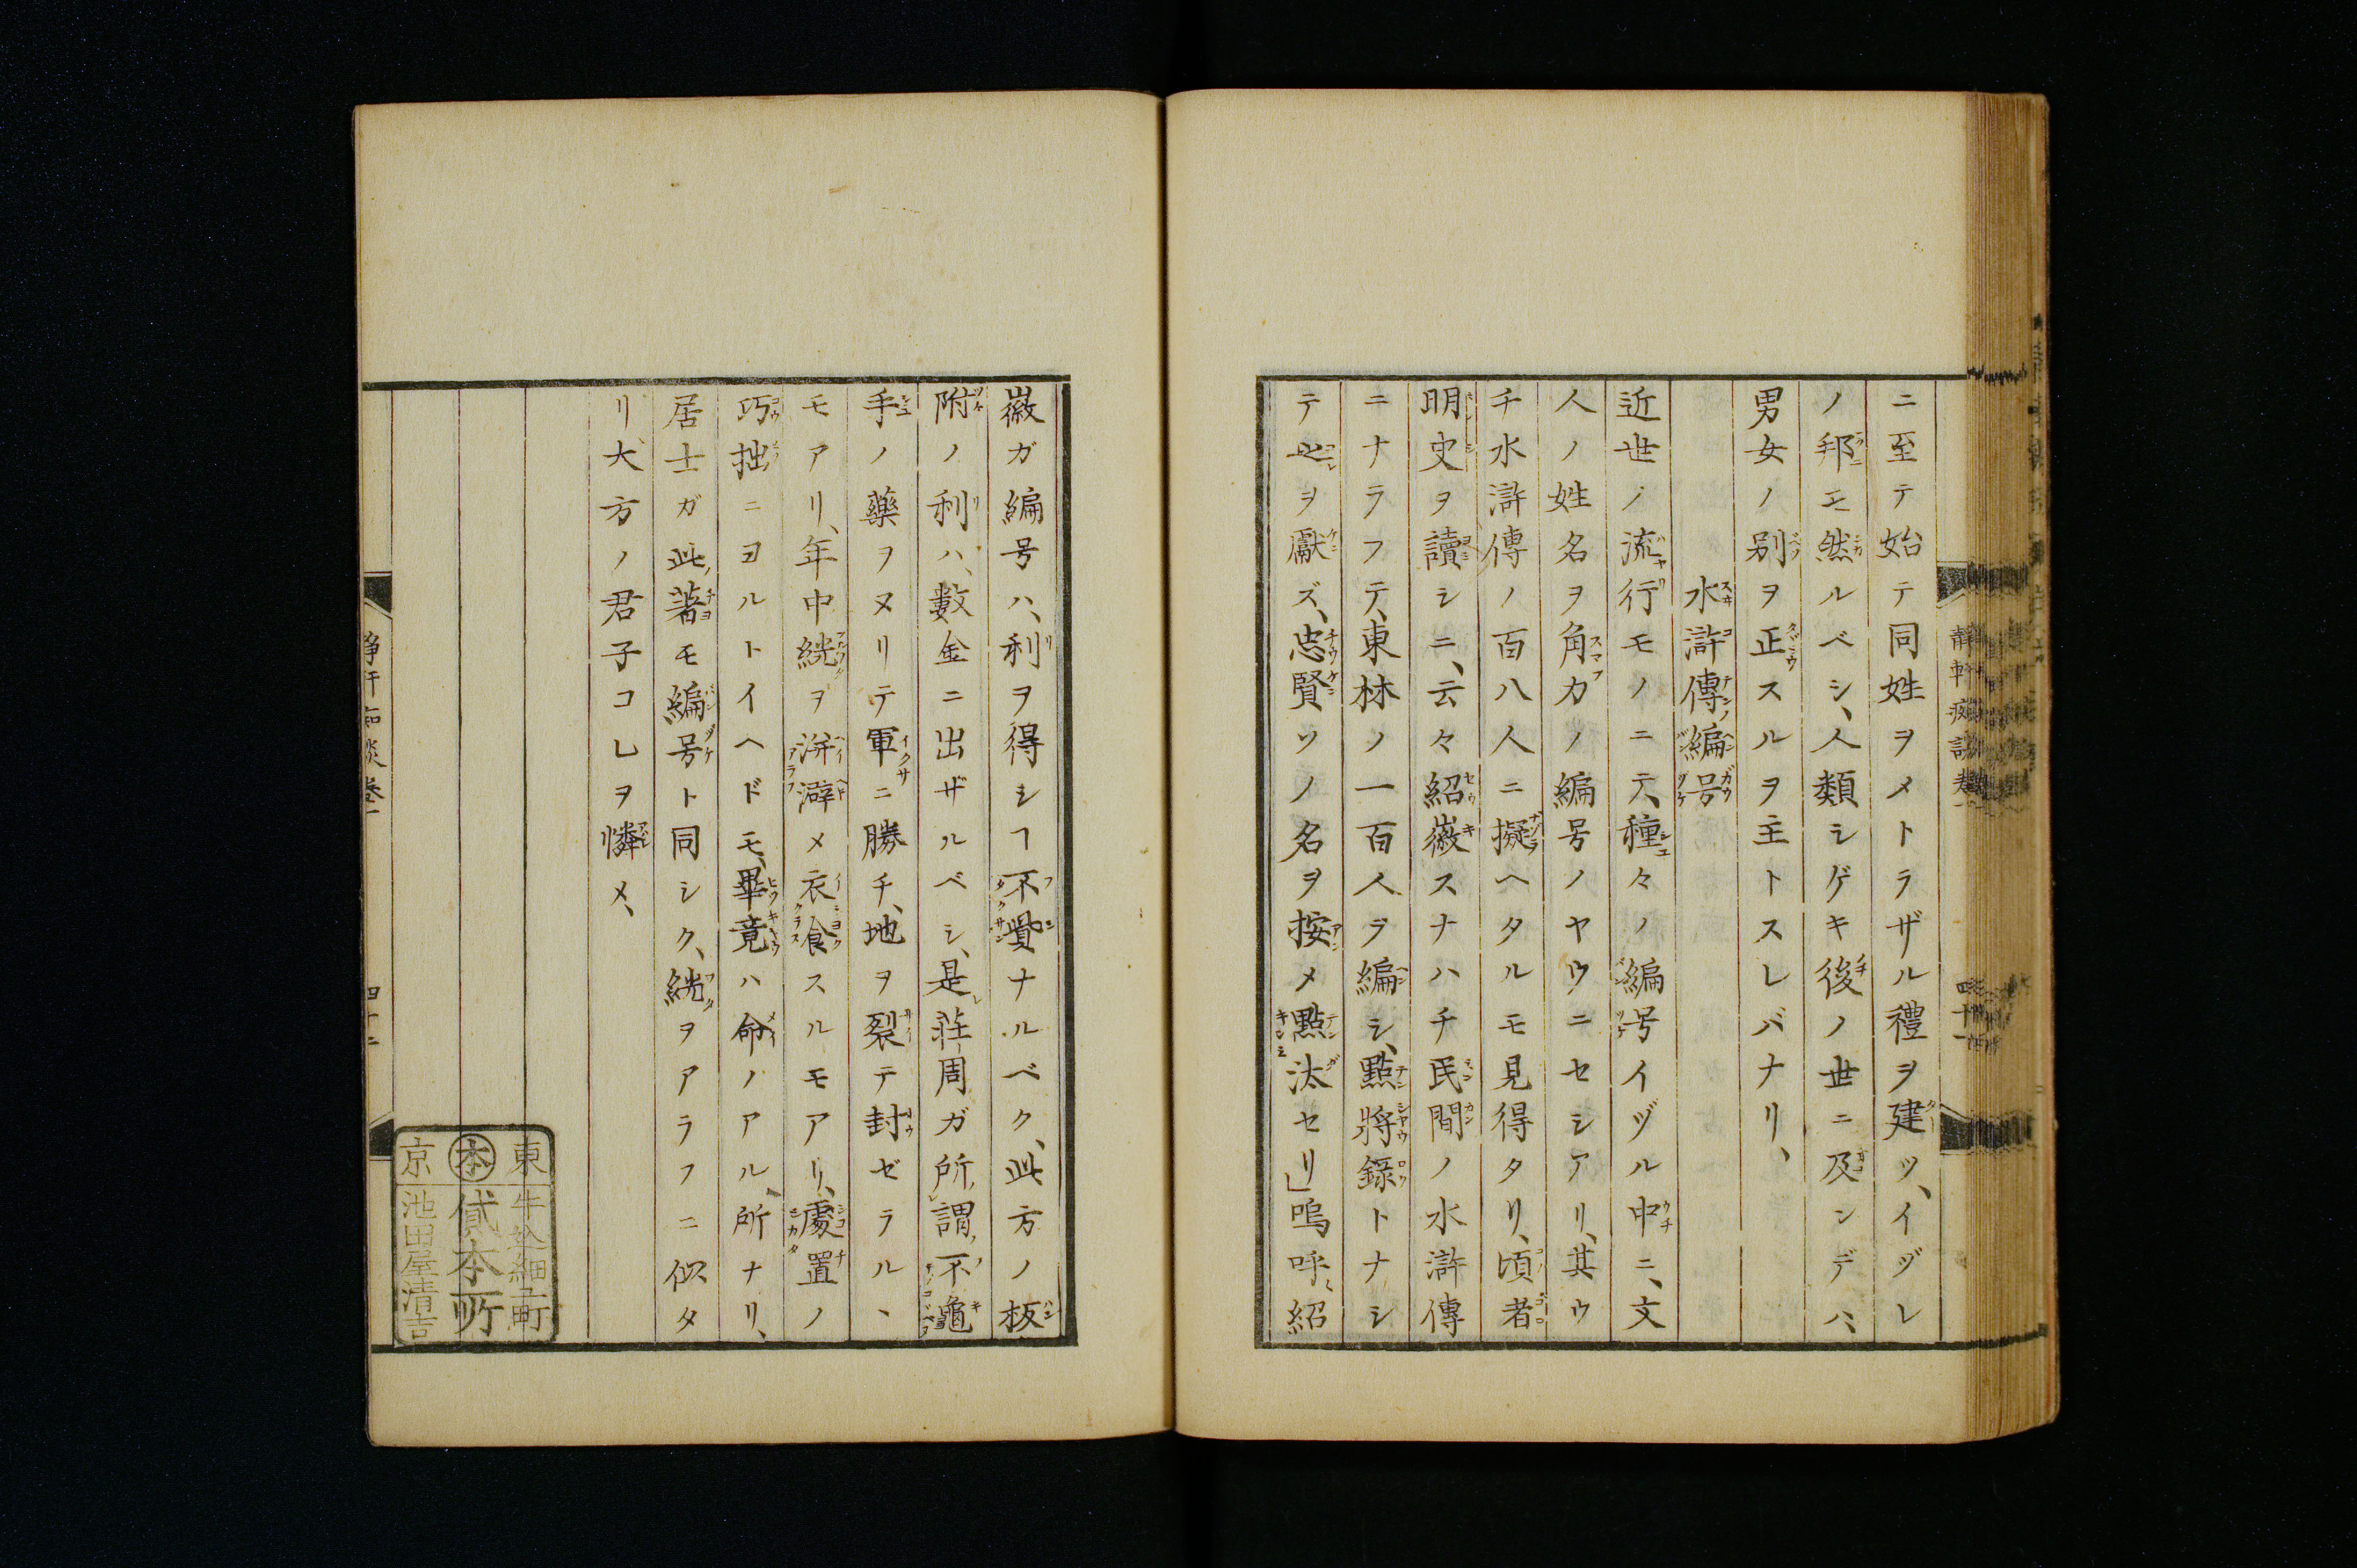 ニ至テ始テ同姓ヲメトラザル禮ヲ建ツ、イヅレ
ノ邦モ然ルベシ、人類シゲキ後ノ世ニ及ンデハ、
男女ノ別ヲ正スルヲ主トスレバナリ、
水滸傳編号
近世ノ流行モノニテ、種々ノ編号イヅル中ニ、文
人ノ姓名ヲ角力ノ編号ノヤウニセシアリ、其ウ
チ水滸傳ノ百八人ニ擬ヘタルモ見得タリ、頃者
明史ヲ讀シニ、云々紹徽スナハチ民間ノ水滸傳
ニナラフテ、東林ノ一百人ヲ編シ、點將録トナシ
テ之ヲ獻ズ、忠賢ソノ名ヲ按メ點汰セリ」嗚呼紹
靜軒痴談巻一
四十一
徽ガ編号ハ、利ヲ得シヿ不貲ナルベク、此方ノ板
附ノ利ハ、數金ニ出ザルベシ、是荘周ガ所謂不龜
手ノ藥ヲヌリテ軍ニ勝チ、地ヲ裂テ封ゼラルヽ
モアリ、年中絖ヲ洴澼メ衣食スルモアリ、處置ノ
巧拙ニヨルトイヘドモ、畢竟ハ命ノアル所ナリ、
居士ガ此著モ編号ト同シク、絖ヲアラフニ似タ
リ大方ノ君子コレヲ憐メ、
四十二
東京
本
牛込細工町
貸本所
池田屋清吉